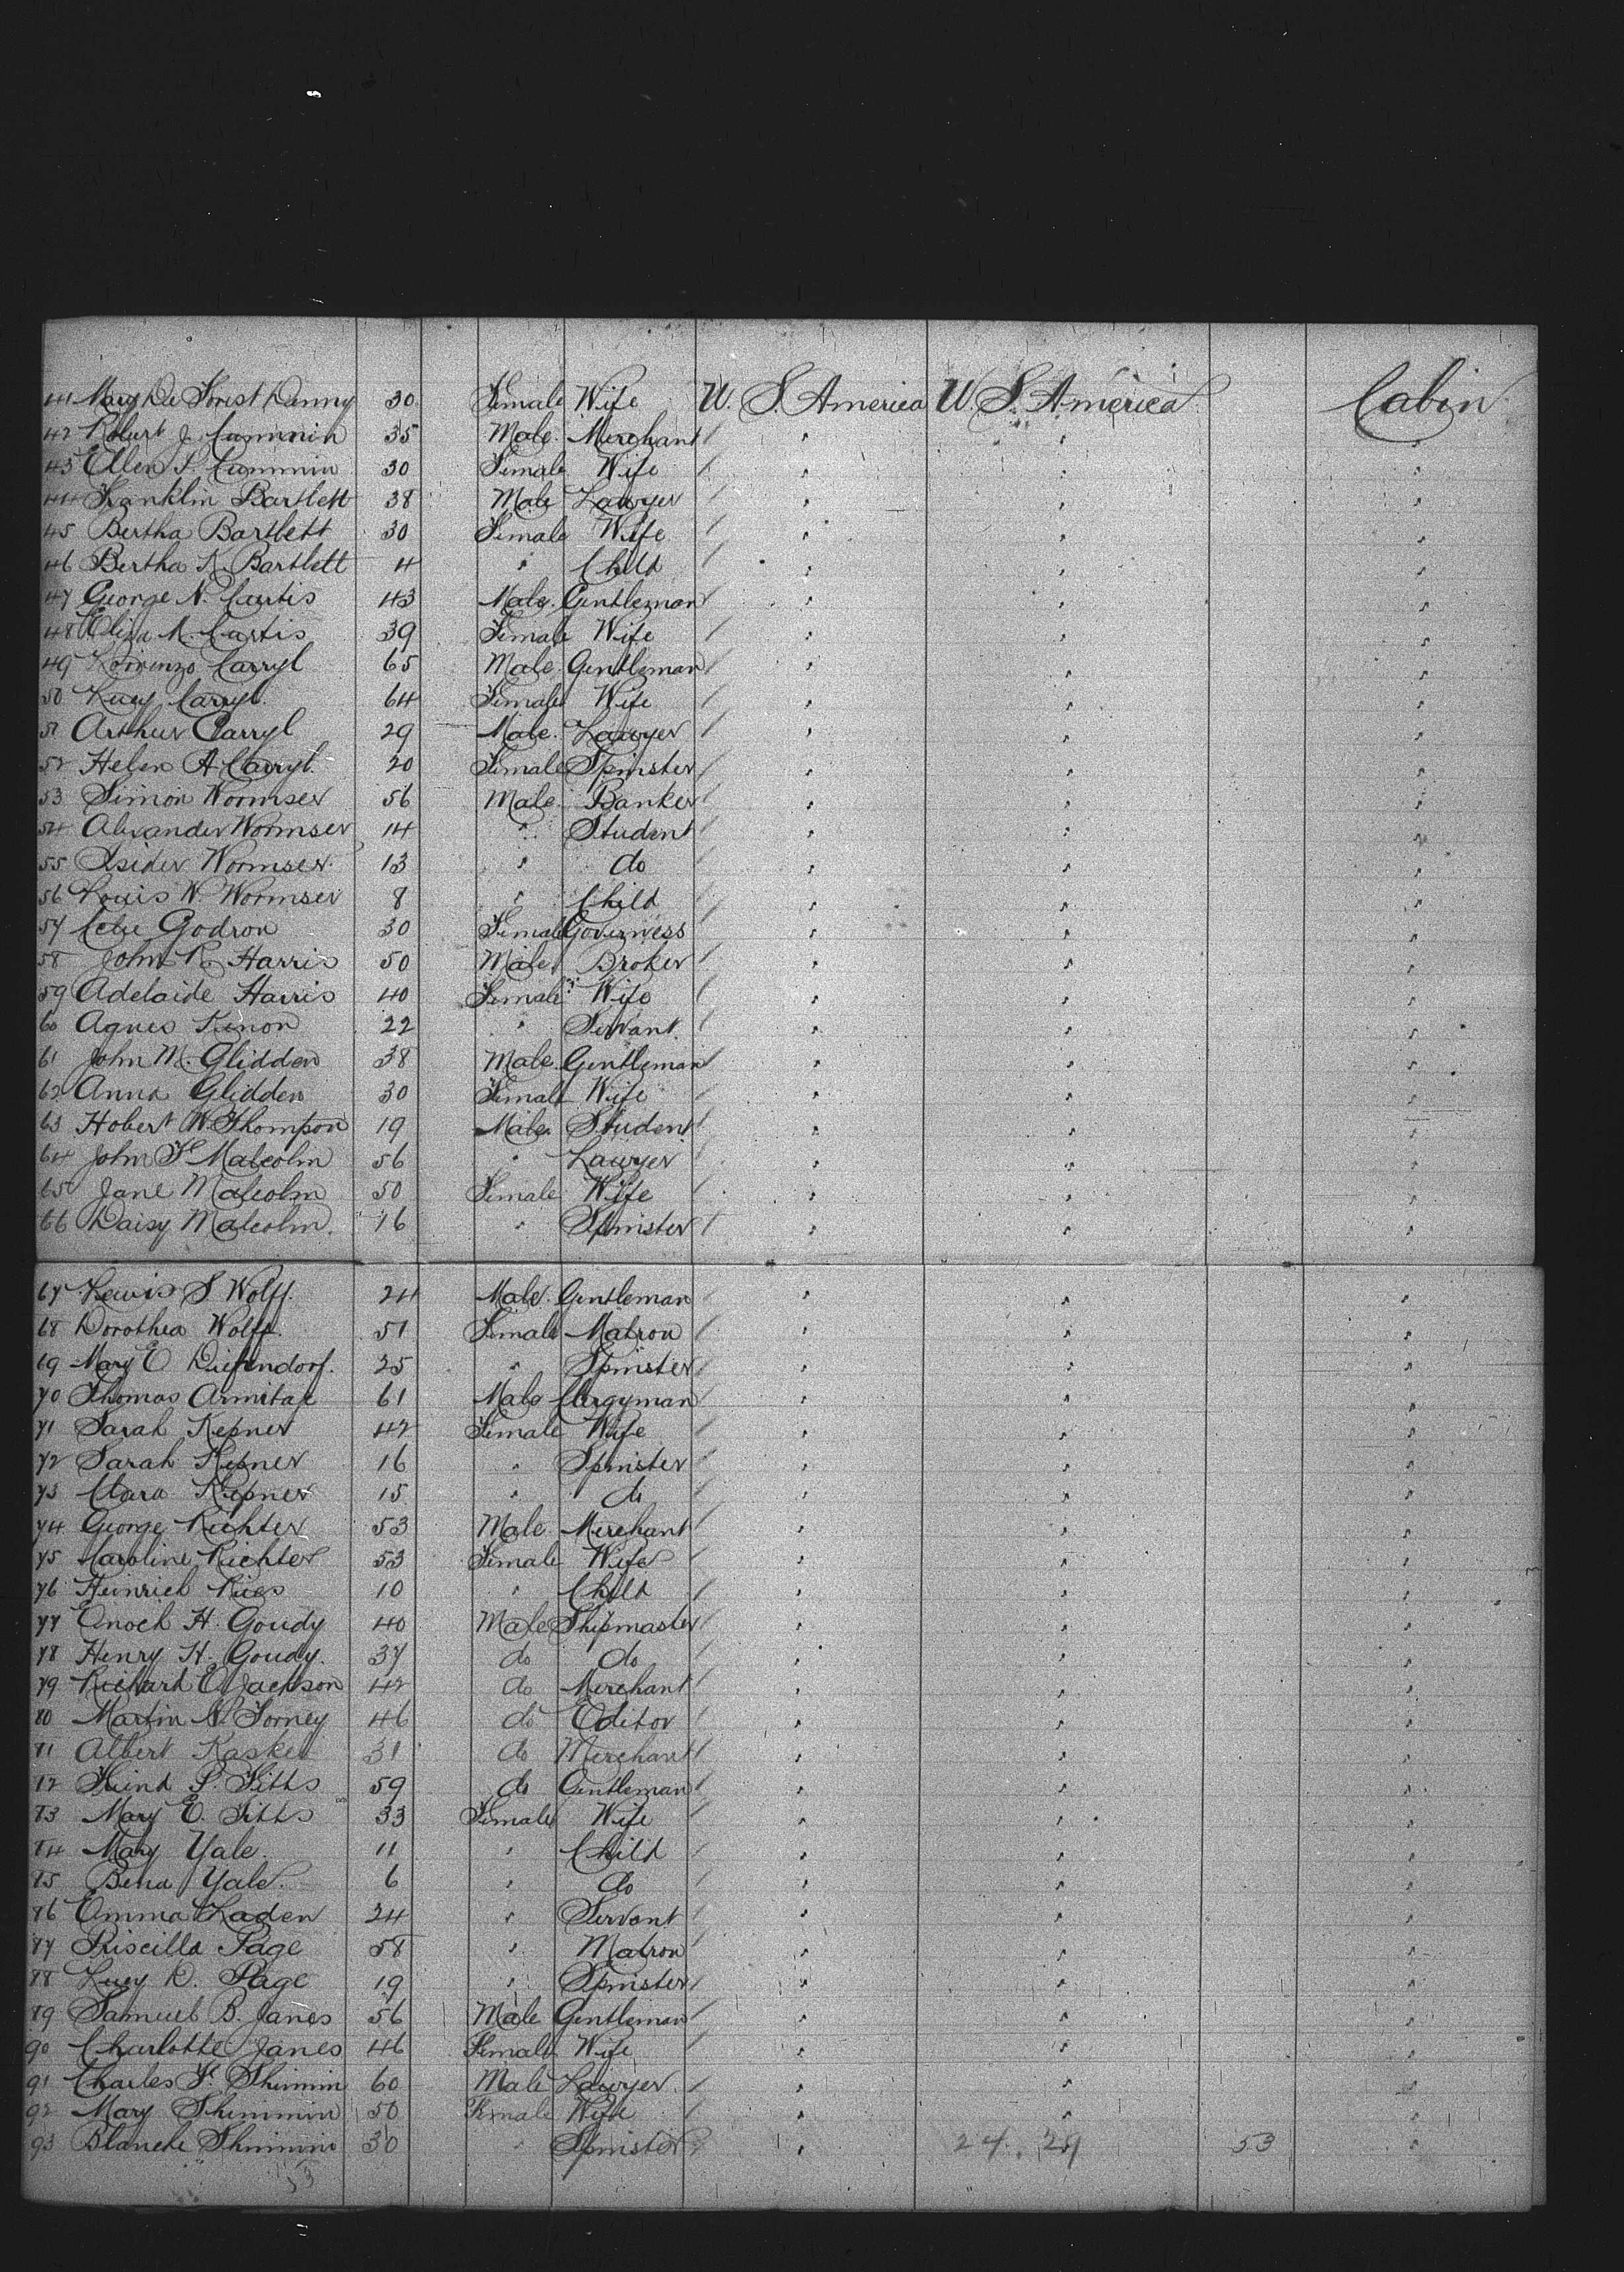 41 Mary De Forest Danny 30 Female Wife U. S. America U. S. America Cabin
42 Robert J. Cummin 35 Male Merchant / " " "
43 Ellen S. Cummin 30 Female Wife / " " "
44 Franklin Bartlett 38 Male Lawyer / " " "
45 Bertha Bartlett 30 Female Wife / " " "
46 Bertha K. Bartlett 4 " Child / " " "
47 George N. Curtis 43 Male Gentleman / " " "
48 Eliza M. Curtis 39 Female Wife / " " "
49 Lorenzo Carryl 65 Male Gentleman / " " "
50 Lucy Carryl 64 Female Wife / " " "
51 Arthur Carryl 29 Male Lawyer / " " "
52 Helen A Carryl 20 Female Spinster / " " "
53 Simon Wormser 56 Male Banker / " " "
54 Alexander Wormser 14 " Student / " " "
55 Isider Wormser 13 " do / " " "
56 Louis W. Wormser 8 " Child / " " "
57 Godron 30 Female Governess / " " "
58 John R. Harris 50 Male Broker / " " "
59 Adelaide Harris 40 Female Wife / " " "
60 Agnes Kenon 22 " Servant / " " "
61 John M. Glidden 38 Male Gentleman / " " "
62 Anna Glidden 30 Female Wife / " " "
63 Hobert W. Thompson 19 Male Student / " " "
64 John F Malcolm 56 " Lawyer / " " "
65 Jane Malcolm 50 Female Wife / " " "
66 Daisy Malcolm 16 " Spinster / " " "
67 Lewis S Wolff. 24 Male Gentleman " " "
68 Dorothea Wolff. 51 Female Matron / " " "
69 Mary E Diefendorf. 25 " Spinster / " " "
70 Thomas Armitage 61 Male Clergyman / " " "
71 Sarah Kepner 42 Female Wife / " " "
72 Sarah Kepner 16 " Spinster / " " "
73 Clara Kepner 15 " do / " " "
74 George Richter 53 Male Merchant / " " "
75 Karoline Richter 53 Female Wife / " " "
76 Heinrich Ries 10 " Child / " " "
77 Enoch H. Goudy 40 Male Shipmaster / " " "
78 Henry H. Goudy. 37 do do / " " "
79 Richard E. Jackson 42 do Merchant / " " "
80 Martin N. Forney 46 do Editor / " " "
81 Albert Kaskel 31 do Merchant / " " "
82 P. Fitts 59 do Gentleman / " " "
83 Mary E. Fitts 33 Female Wife / " " "
84 Mary Yale. 11 " Child / " " "
85 Bena Yale. 6 " do / " " "
86 Emma Laden 24 " Servant / " " "
87 Priscilla Page 58 " Matron / " " "
88 Lucy D. Page 19 " Spinster / " " "
89 Samuel B. Janes 56 Male Gentleman / " " "
90 Charlotte Janes 46 Female Wife / " " "
91 Charles F. Shimmin 60 Male Lawyer / " " "
92 Mary Shimmin 50 Female Wife / " " "
93 Blanche Shimmin 30 " Spinster / " 24. 29 53 "
53